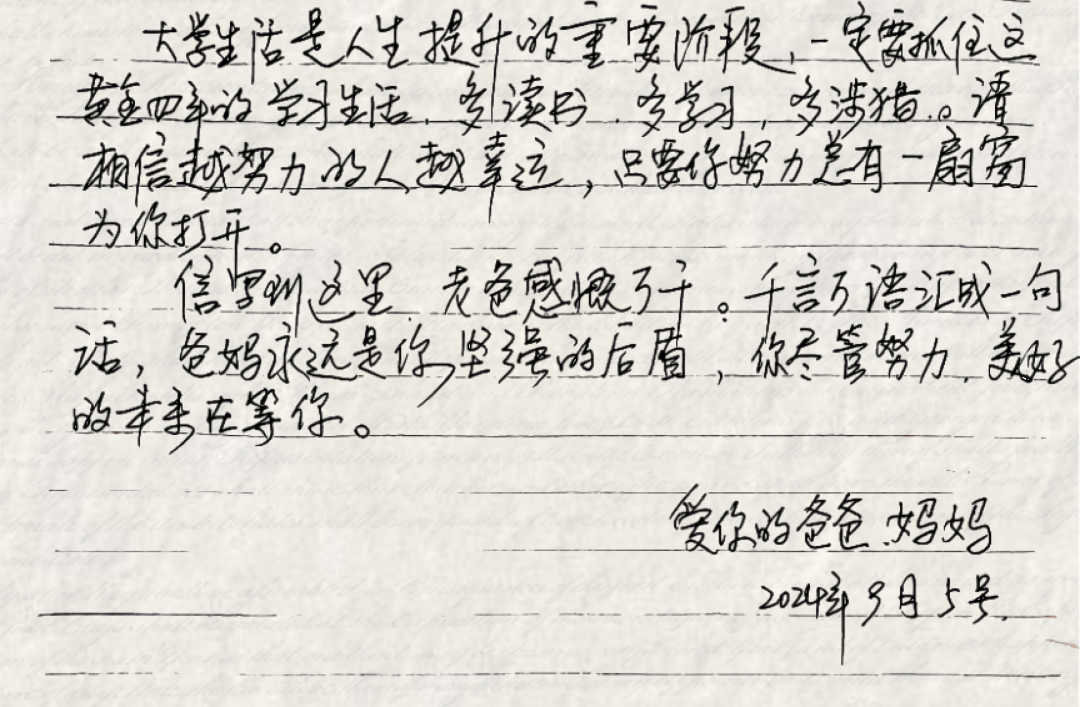 大学生活是人生提升的重要阶段,一定要抓住这
黄金四年的学习生活.多读书.多学习,多涉猎。请
相信越努力的人越幸运,只要你努力总有一扇窗
为你打开。
信写到这里.老爸感慨万千。千言万语汇成一句
话,爸妈永远是你坚强的后盾,你尽管努力.美好
的未来在等你。
爱你的爸爸.妈妈
2024年9月5号.